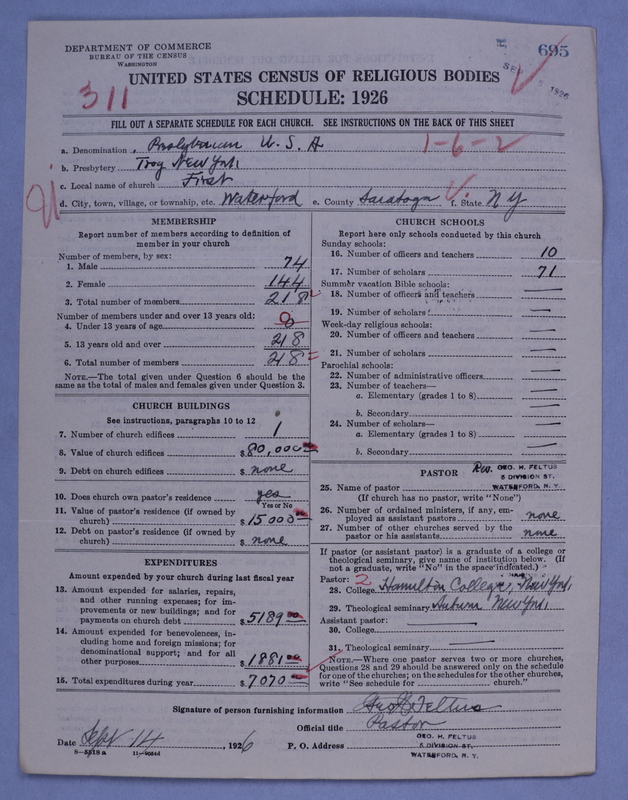 DEPARTMENT OF COMMERCE
BUREAU OF THE CENSUS
WASHINGTON
695
SEP 1926
UNITED STATES CENSUS OF RELIGIOUS BODIES
311
SCHEDULE: 1926
FILL OUT A SEPARATE SCHEDULE FOR EACH CHURCH. SEE INSTRUCTIONS ON THE BACK OF THIS SHEET
a. Denomination Presbyterian U. S. A 1-6-2
b. Presbytery Troy New York
c. Local name of church First
d. City, town, village, or township, etc. Waterford e. County Saratoga f. State N Y
MEMBERSHIP
Report number of members according to definition of member in your church
Number of members, by sex:
1. Male 74
2. Female 144
3. Total number of members 218
Number of members under and over 13 years old:
4. Under 13 years of age 0
5. 13 years old and over 218
6. Total number of members 218
NOTE.—The total given under Question 6 should be the
same as the total of males and females given under Question 3.
CHURCH BUILDINGS
See instructions, paragraphs 10 to 12
7. Number of church edifices 1
8. Value of church edifices $80,000
9. Debt on church edifices $ none
10. Does church own pastor's residence yes
Yes or No
11. Value of pastor's residence (if owned by
church) $15000
12. Debt on pastor's residence (if owned by
church) $ none
EXPENDITURES
Amount expended by your church during last fiscal year
13. Amount expended for salaries, repairs,
and other running expenses; for im-
provements or new buildings; and for
payments on church debt $5189 00
14. Amount expended for benevolences, in-
cluding home and foreign missions; for
denominational support; and for all
other purposes $1881 00
15. Total expenditures during year $7070
CHURCH SCHOOLS
Report here only schools conducted by this church
Sunday schools:
16. Number of officers and teachers 10
17. Number of scholars 71
Summer vacation Bible schools:
18. Number of officers and teachers —
19. Number of scholars —
Week-day religious schools:
20. Number of officers and teachers —
21. Number of scholars —
Parochial schools:
22. Number of administrative officers —
23. Number of teachers—
a. Elementary (grades 1 to 8) —
b. Secondary —
24. Number of scholars—
a. Elementary (grades 1 to 8) —
b. Secondary —
PASTOR
Rev. GEO. H. FELTUS
5 DIVISION ST.
WATERFORD, N. Y.
25. Name of pastor
(If church has no pastor, write "None")
26. Number of ordained ministers, if any, em-
ployed as assistant pastors none
27. Number of other churches served by the
pastor or his assistants none
If pastor (or assistant pastor) is a graduate of a college or
theological seminary, give name of institution below. (If
not a graduate, write "No" in the space indicated.)
Pastor: 2
28. College Hamilton College, New York
29. Theological seminary Auburn New York
Assistant pastor:
30. College —
31. Theological seminary —
NOTE.—Where one pastor serves two or more churches,
Questions 28 and 29 should be answered only on the schedule
for one of the churches; on the schedules for the other churches,
write "See schedule for church."
Signature of person furnishing information Geo H Feltus
Official title Pastor
Date Sept 14, 1926 P. O. Address GEO. H. FELTUS
5 DIVISION ST.
WATERFORD, N. Y.
8-5518a